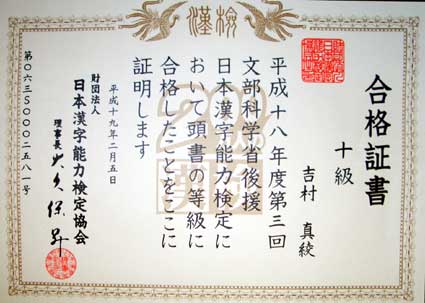 漢検
合格証書
十級
吉村 真綾
平成十八年度第三回
文部科学省後援
日本漢字能力検定に
おいて頭書の等級に
合格したことをここに
証明します
平成十九年二月五日
財団法人
日本漢字能力検定協会
理事長 大久保 昇
第〇六三S〇〇〇二五八一号